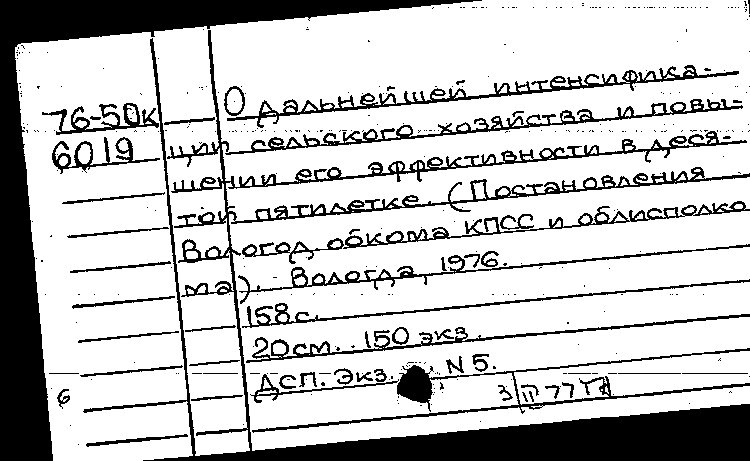 76-50к
6019
О дальнейшей интенсифика-
ции сельского хозяйства и повы-
шении его эффективности в деся-
той пятилетке. (Постановления
Вологод. обкома КПСС и облисполко
ма). Вологда, 1976.
158 с.
20 см. 150 экз.
ДСП. Экз. N 5.
3/III 77
6